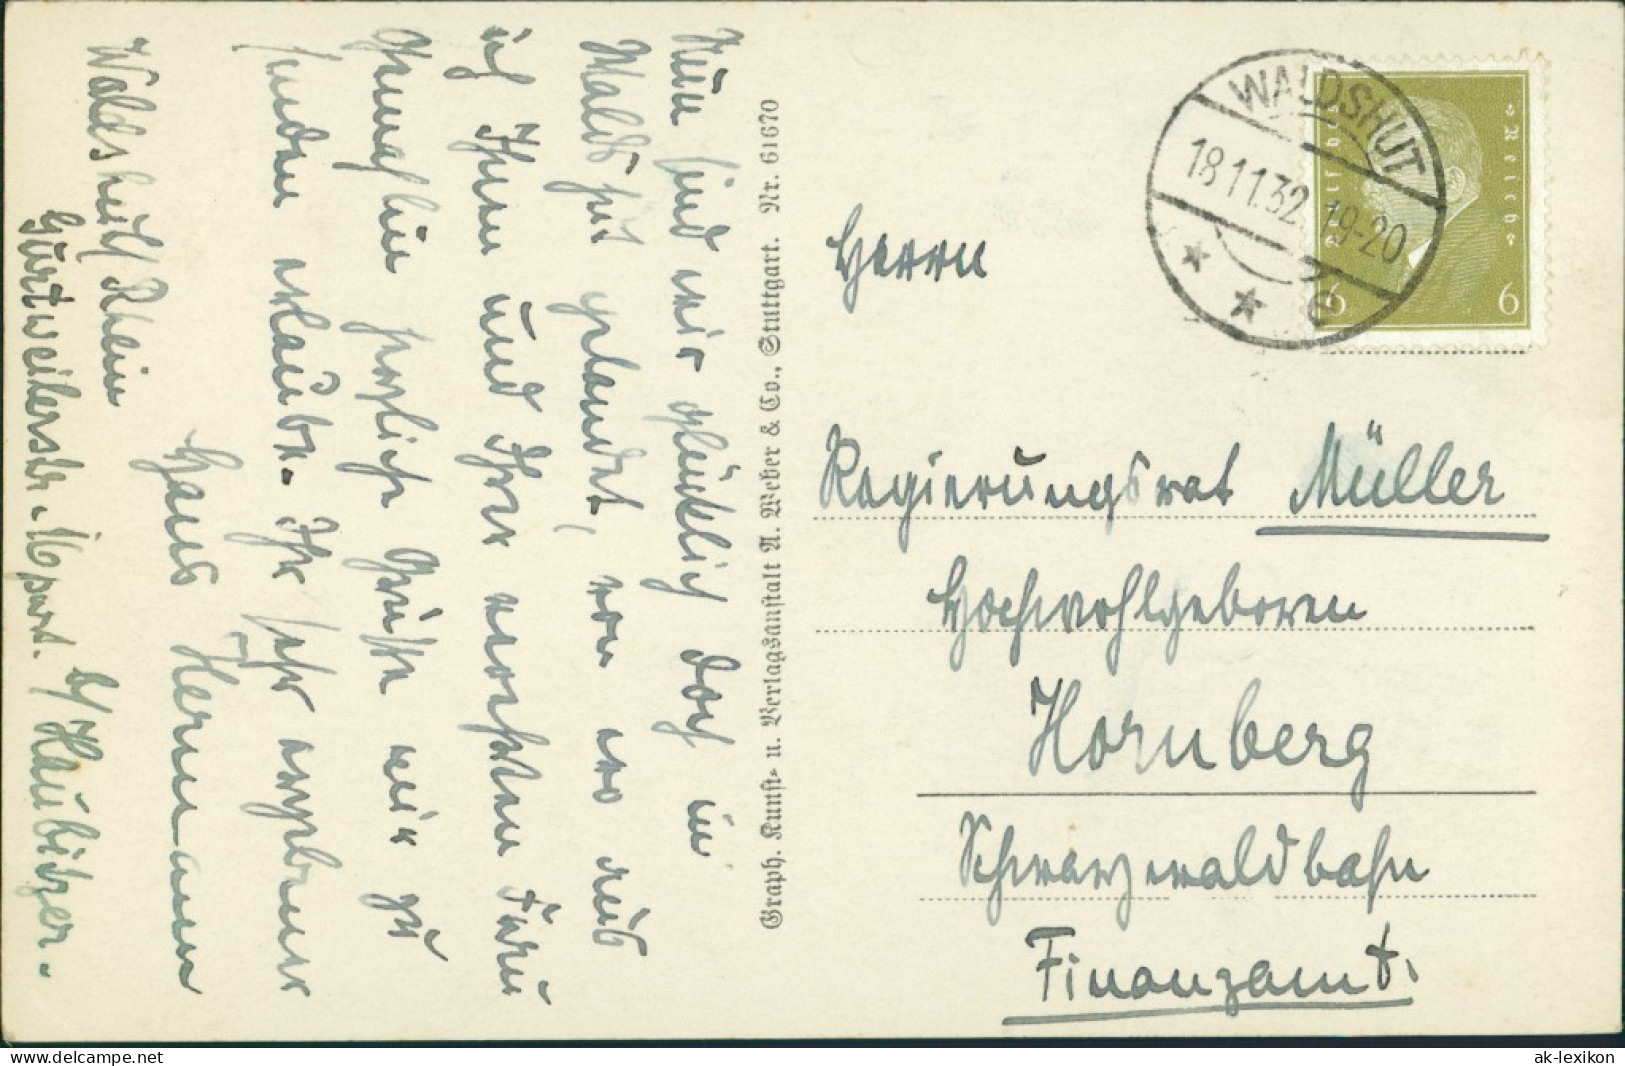 Nun sind wir glücklich doch in
Waldshut gelandet, von wo aus
ich Ihnen und Ihrer werten Frau
Gemahlin herzliche Grüße mir zu
senden erlaube. Ihr sehr ergebener
Hans Hermann
Waldshut/Rhein
Gurtweilerstr. 16 part. b/Haubitzer.
Graph. Kunst- u. Verlagsanstalt A. Weber & Co., Stuttgart. Nr. 61670
WALDSHUT
18.11.32. 19-20
* * c
Deutsches Reich
6 6
Herrn
Regierungsrat Müller
Hochwohlgeboren
Hornberg
Schwarzwaldbahn
Finanzamt.
delcampe.net
ak-lexikon